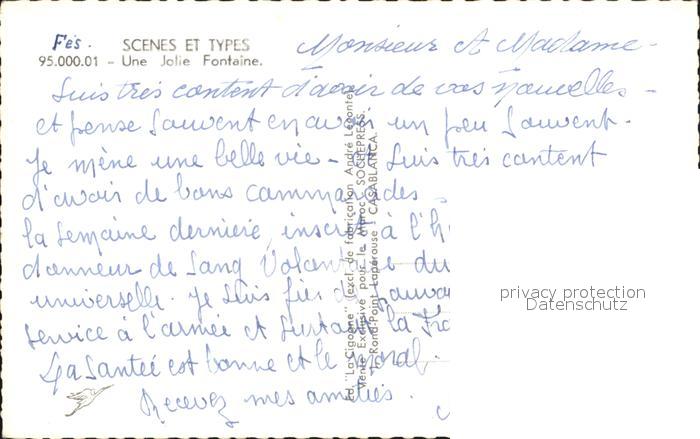 Fès. SCENES ET TYPES
95.000.01 – Une Jolie Fontaine.
Monsieur et Madame -
Suis très content d'avoir de vos nouvelles -
et pense souvent en avoir un peu souvent.
Je mène une belle vie - Suis très content
d'avoir de bons cammarades -
la semaine dernière, inscrit à l'h
donneur de sang Volont du
universelle. Je suis fier
service à l'armée et surtout la Fra
La santée est bonne et le moral.
Recevez mes amitiés.
Ed. "La Cigogne" (excl. de fabrication André Leconte)
Vente Exclusive pour le Maroc : SOCHEPRESS
1, Rond-Point Lapérouse - CASABLANCA.
privacy protection
Datenschutz